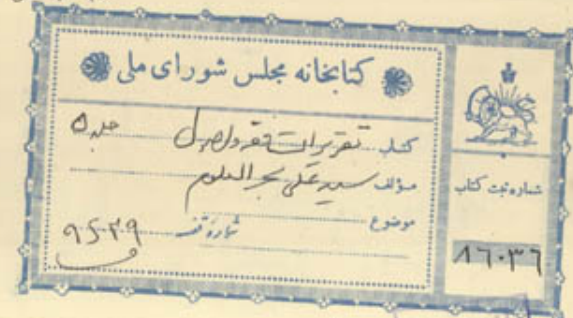 کتابخانه مجلس شورای ملی
کتاب تقریرات فقه و اصول جلد ۵
مؤلف سید علی بحر العلوم
موضوع
شماره قفسه
۹۵۲۹
شماره ثبت کتاب
۸۶۰۳۶